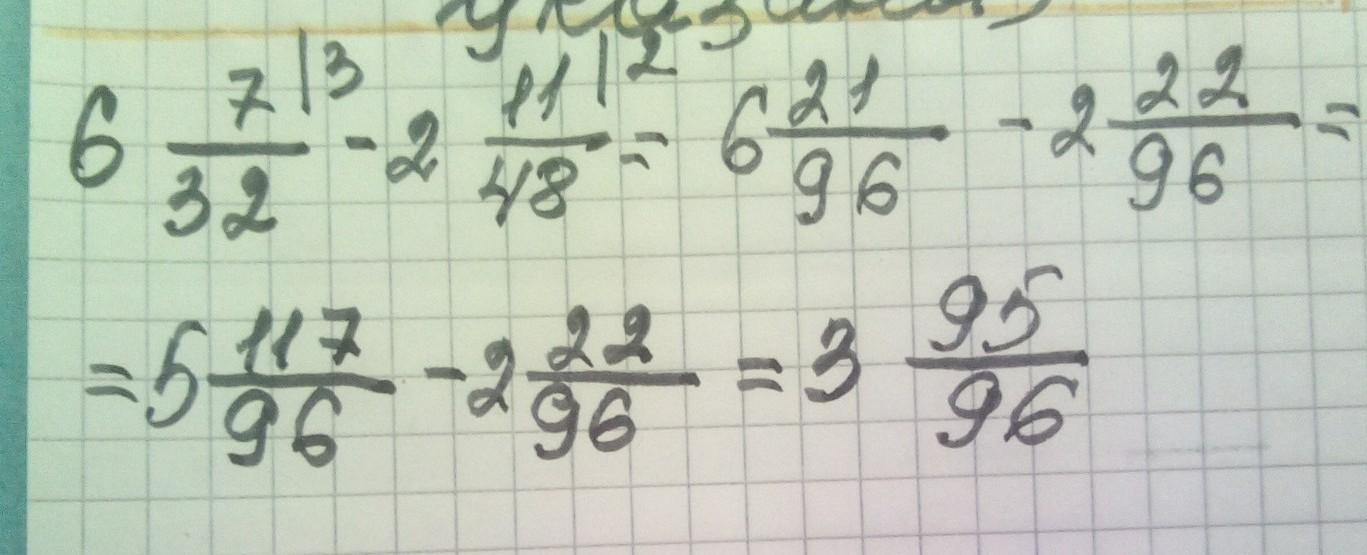 6 7|3/32 - 2 11|2/48 = 6 21/96 - 2 22/96 =
= 5 117/96 - 2 22/96 = 3 95/96